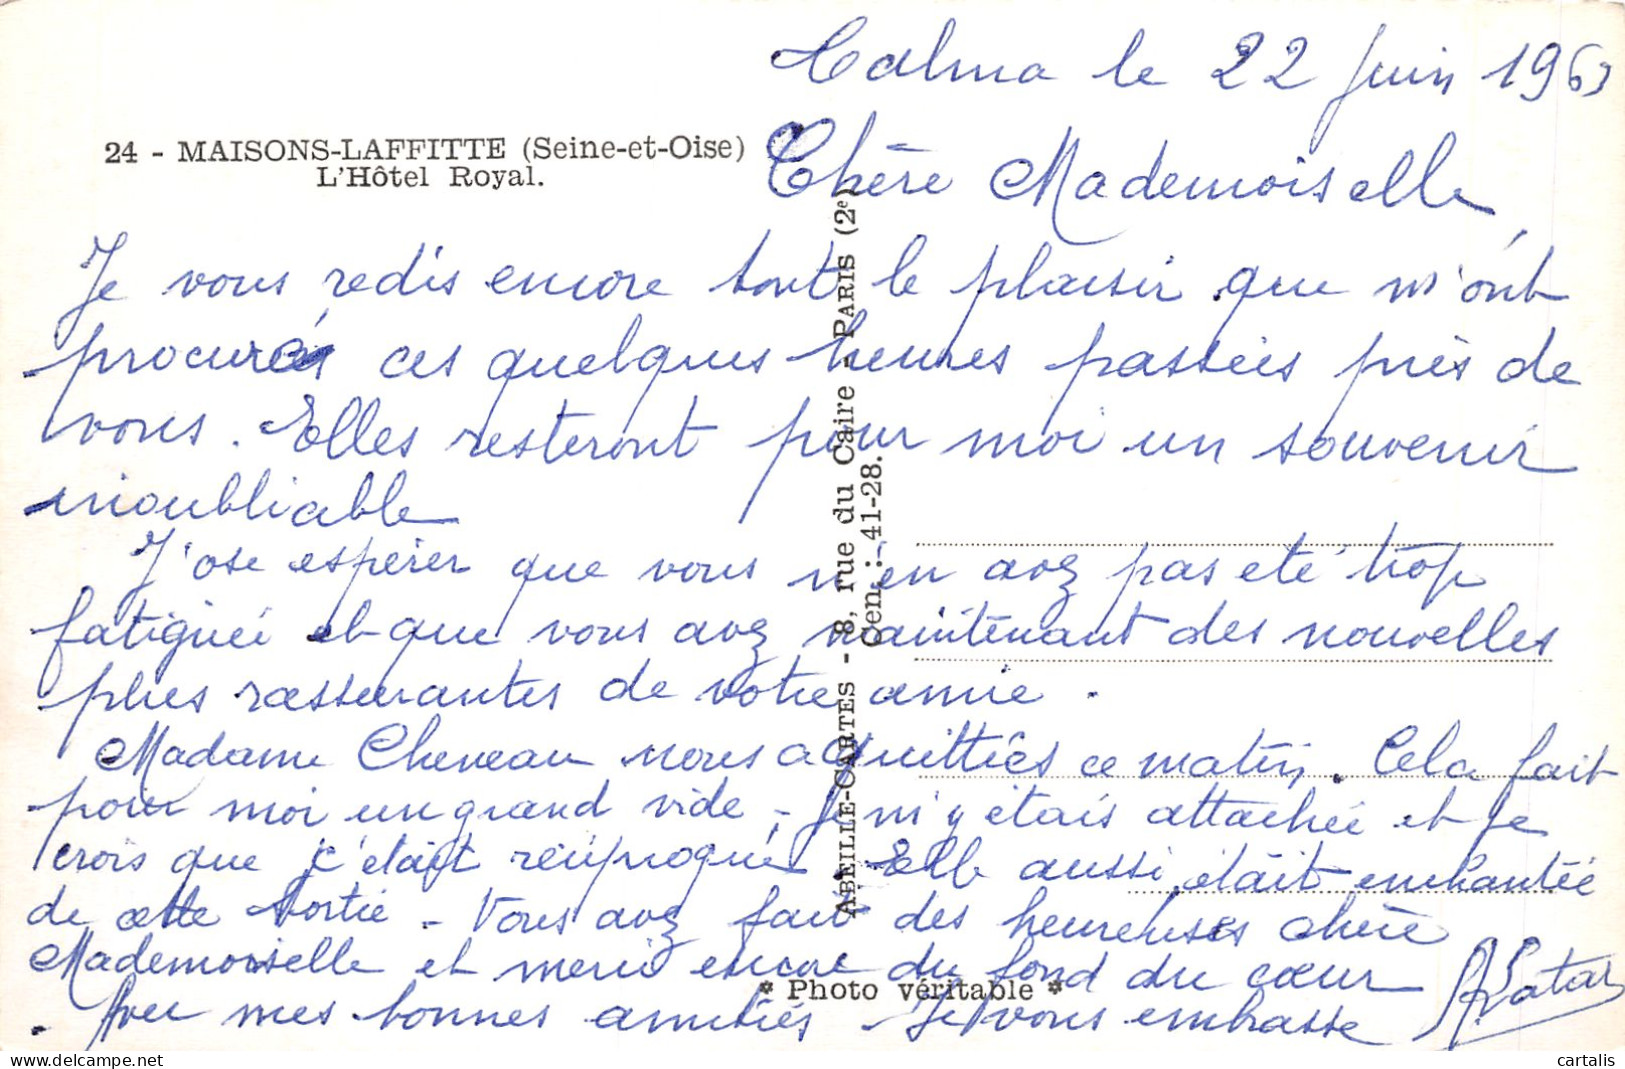 Calma le 22 Juin 1963
24 - MAISONS-LAFFITTE (Seine-et-Oise)
L'Hôtel Royal.
Chère Mademoiselle,
Je vous redis encore tout le plaisir que m'ont
procurés ces quelques heures passées près de
vous. Elles resteront pour moi un souvenir
inoubliable
J'ose espérer que vous n'en avez pas été trop
fatiguée et que vous avez maintenant des nouvelles
plus rassurantes de votre amie.
Madame Cheveau nous a quittées ce matin. Cela fait
pour moi un grand vide, Je m'y étais attachée et je
crois que c'était réciproque Elle aussi était enchantée
de cette sortie - Vous avez fait des heureuses chère
Mademoiselle et merci encore du fond du cœur
. Avec mes bonnes amitiés Je vous embrasse
ABEILLE-CARTES - 8, rue du Caire - PARIS (2e)
Cen. : 41-28.
* Photo véritable *
cartalis